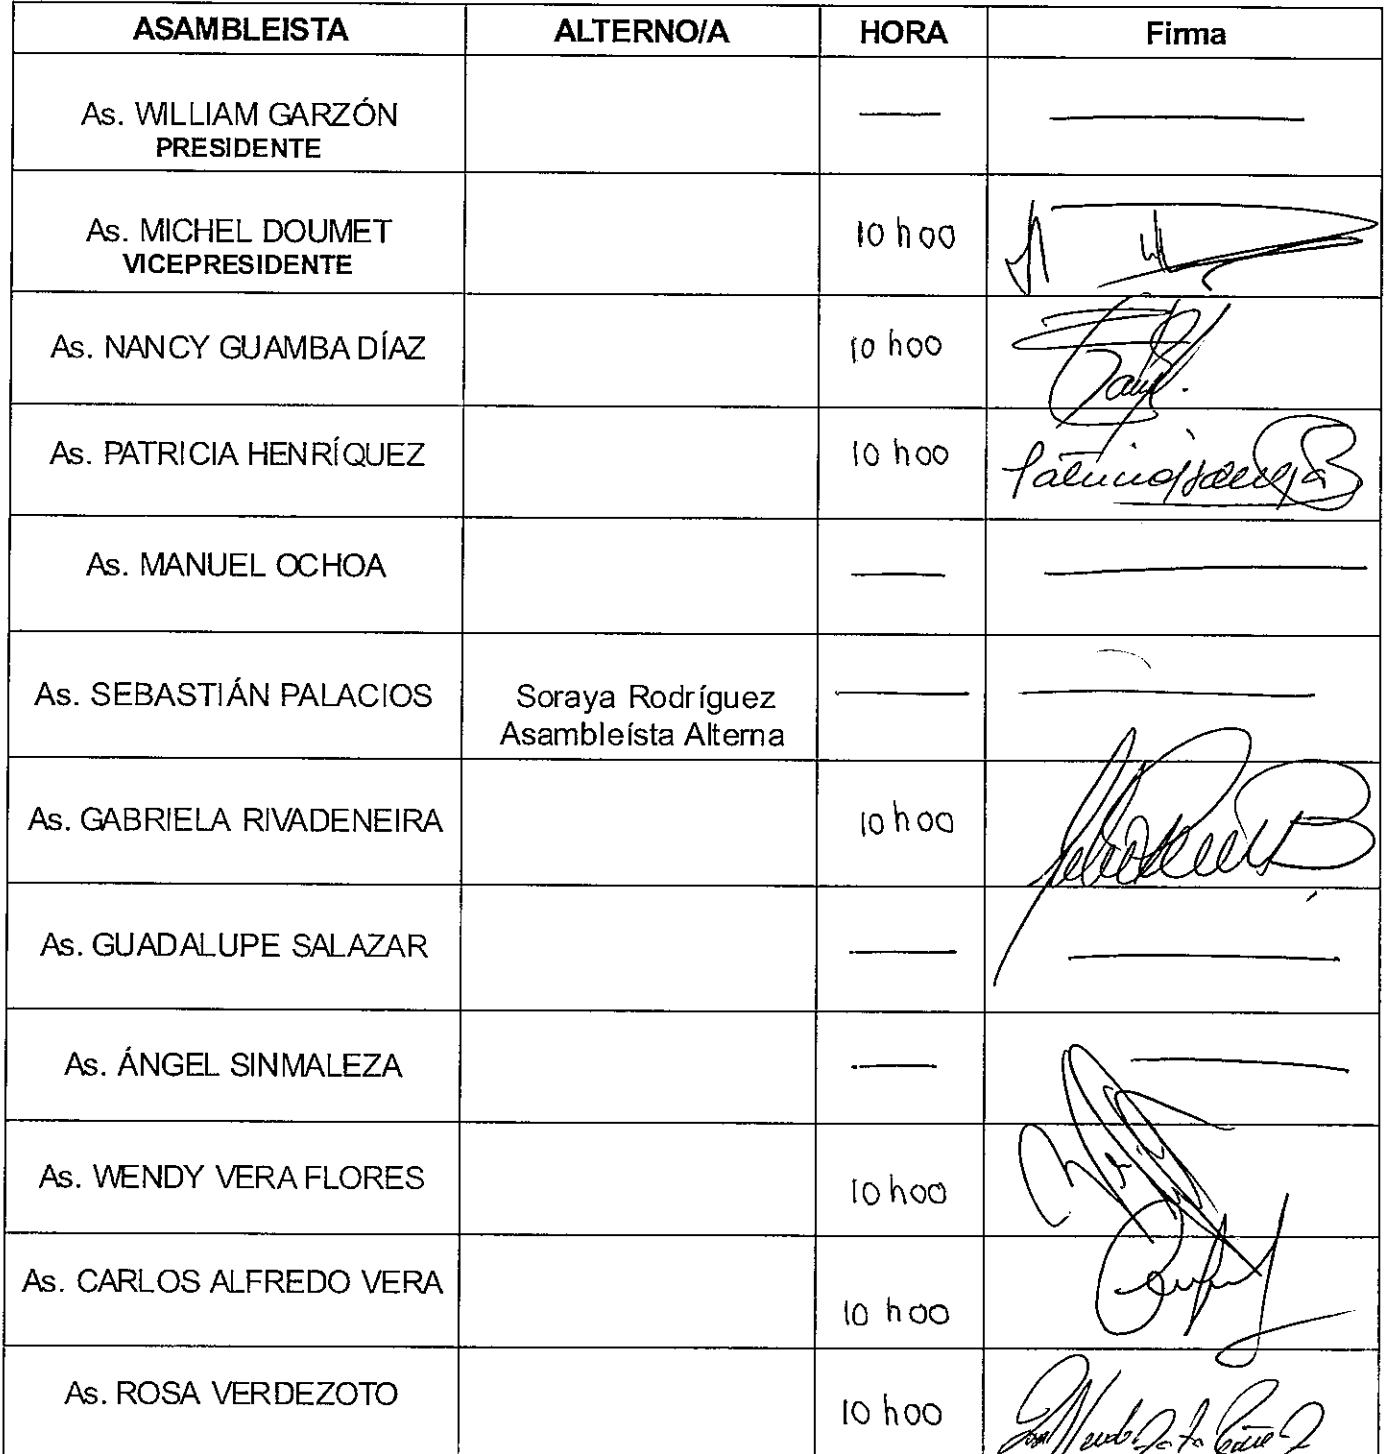 ASAMBLEISTA ALTERNO/A HORA Firma
As. WILLIAM GARZÓN
PRESIDENTE
As. MICHEL DOUMET 10 h00
VICEPRESIDENTE
As. NANCY GUAMBA DÍAZ 10 h00
As. PATRICIA HENRÍQUEZ 10 h00
As. MANUEL OCHOA
As. SEBASTIÁN PALACIOS Soraya Rodríguez
Asambleísta Alterna
As. GABRIELA RIVADENEIRA 10 h00
As. GUADALUPE SALAZAR
As. ÁNGEL SINMALEZA
As. WENDY VERA FLORES 10 h00
As. CARLOS ALFREDO VERA 10 h00
As. ROSA VERDEZOTO 10 h00